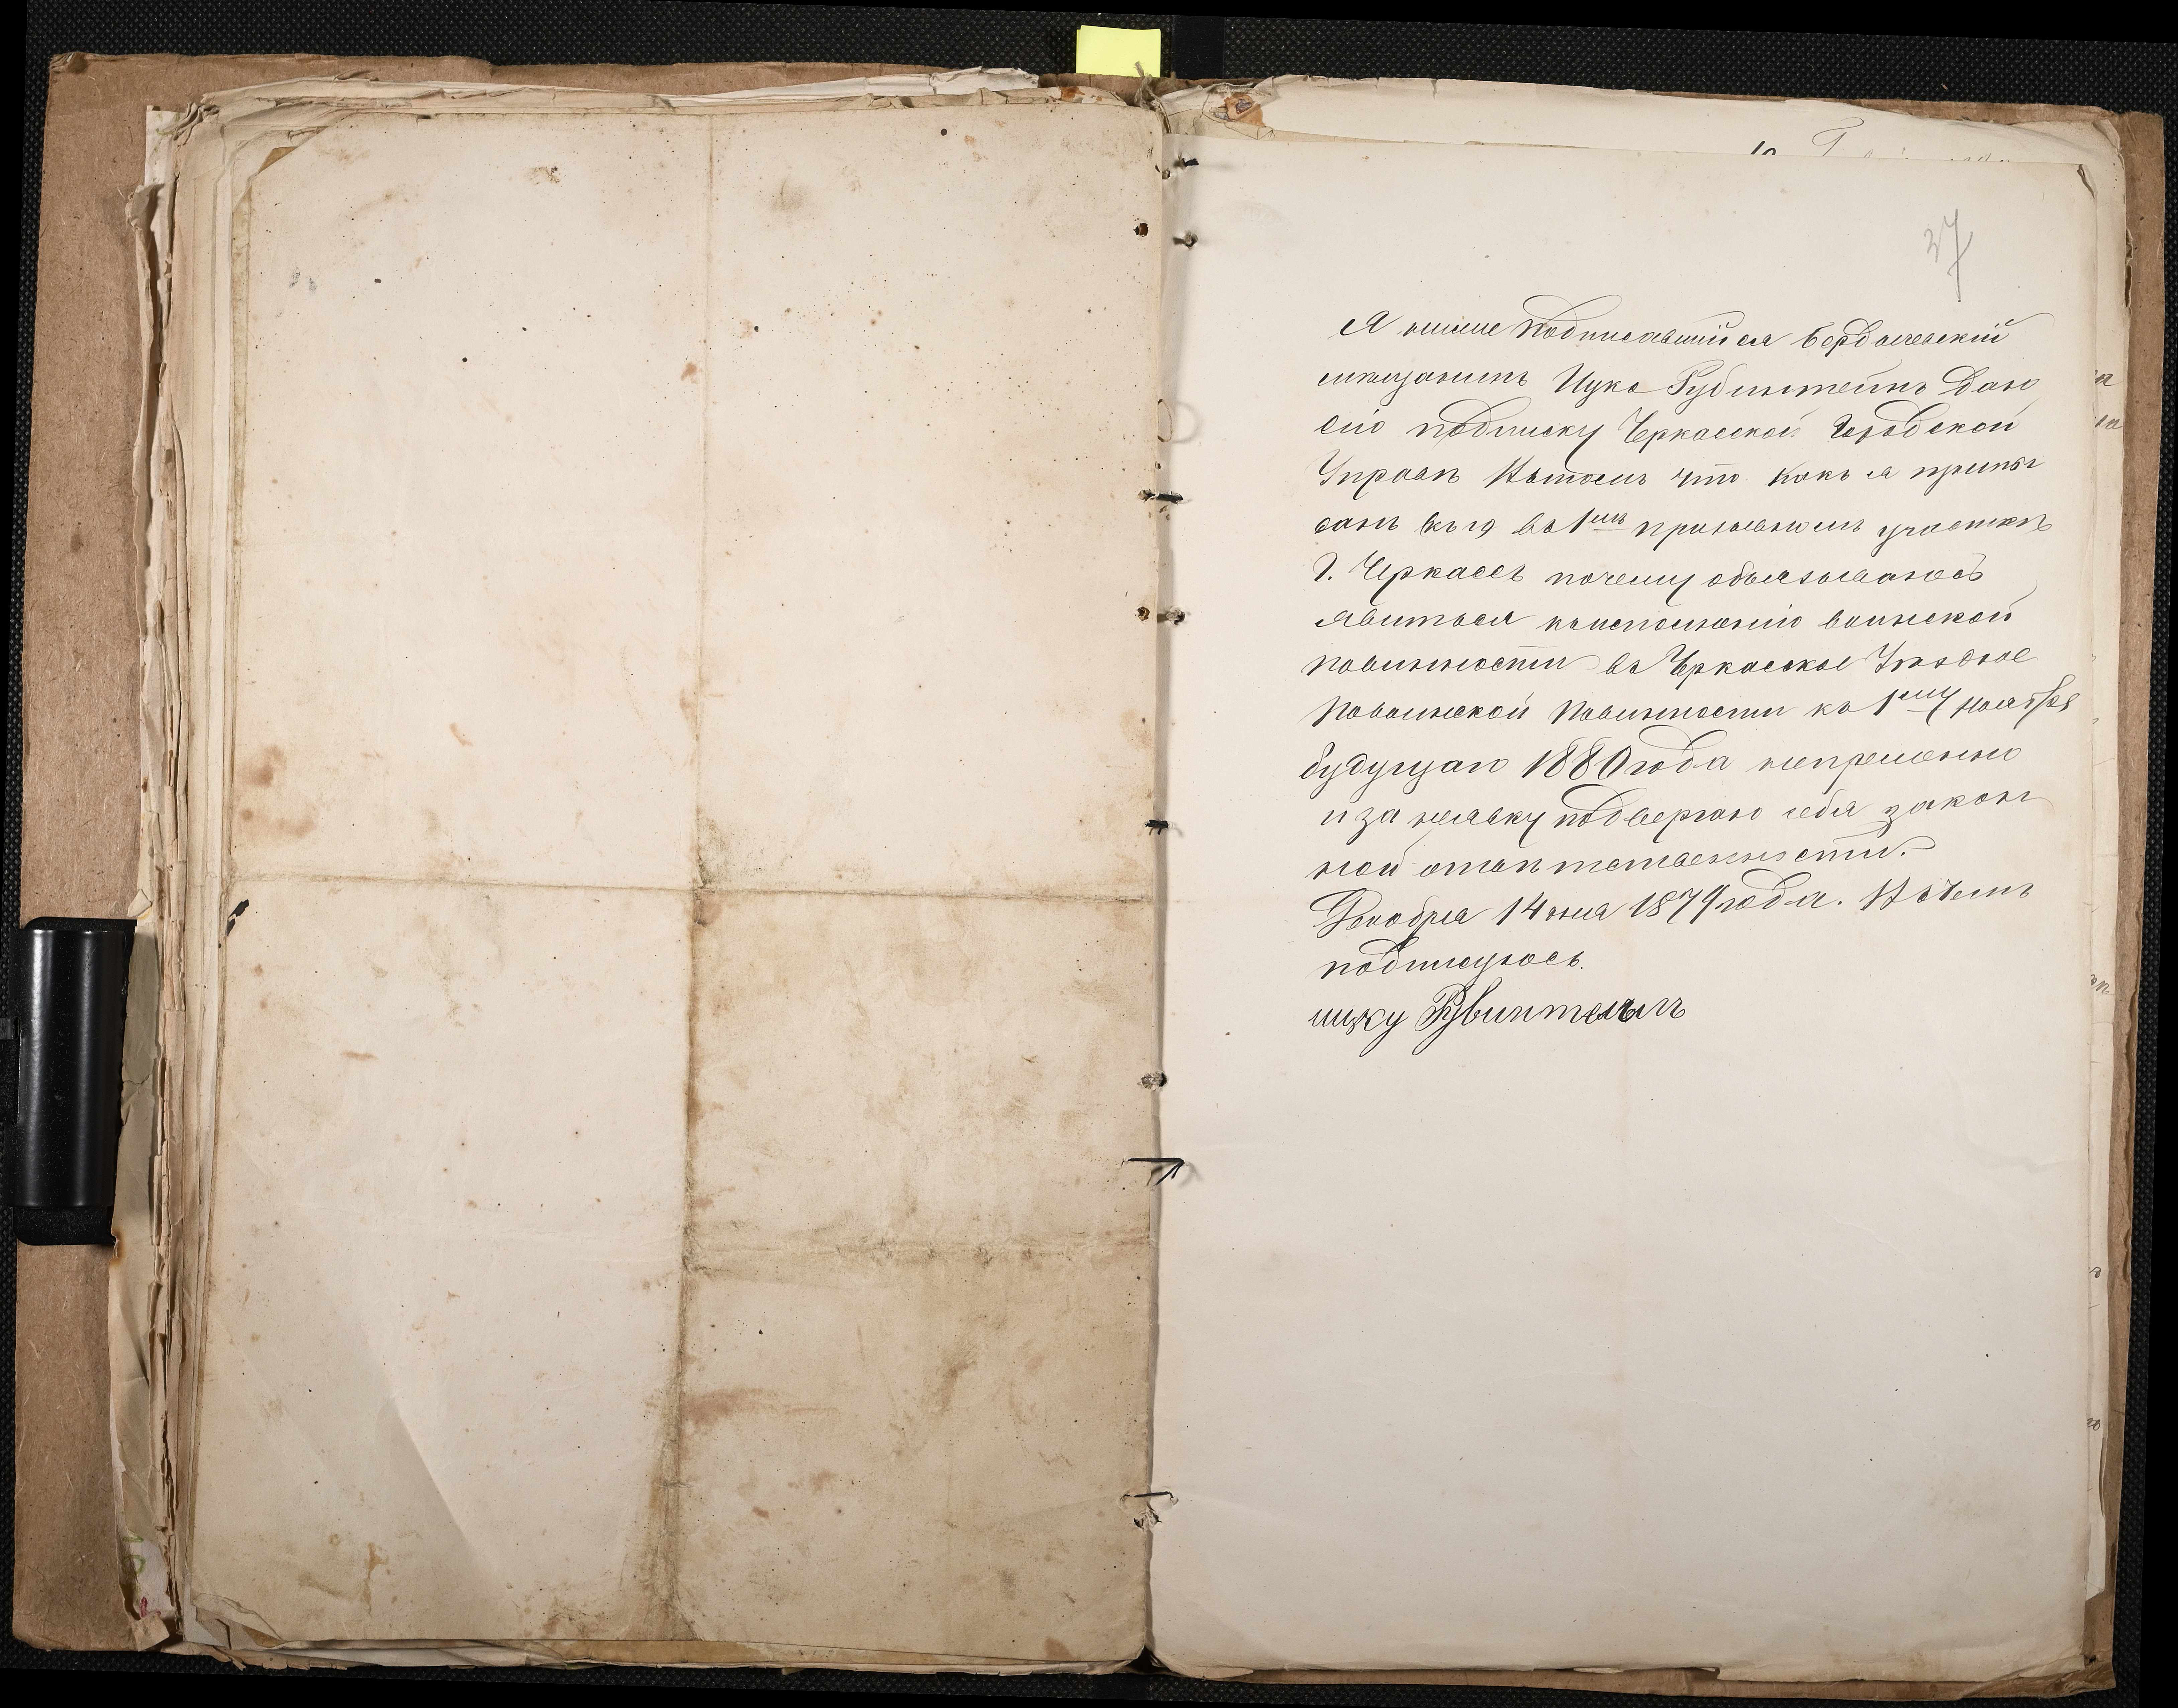 37
Я ниже подписавшийся бердычевскій
мещанинъ Ицко Рубинштейнъ даю
сію подписку Черкасской Городской
Управѣ Натомъ что какъ я припи
санъ въ 1мъ призывномъ участкѣ
г. Черкассъ почему обязываюсь
явиться къисполненію воинской
повинности въ Черкасское Уѣздное
Повоинской Повинности къ 1му ноября
будущаго 1880 года непременно
и за неявку подвергаю себя закон
ной отвѣтственности.
Декабря 14 дня 1879 года. Въчемъ
подписуюсь.
ицку Рувинштейнъ